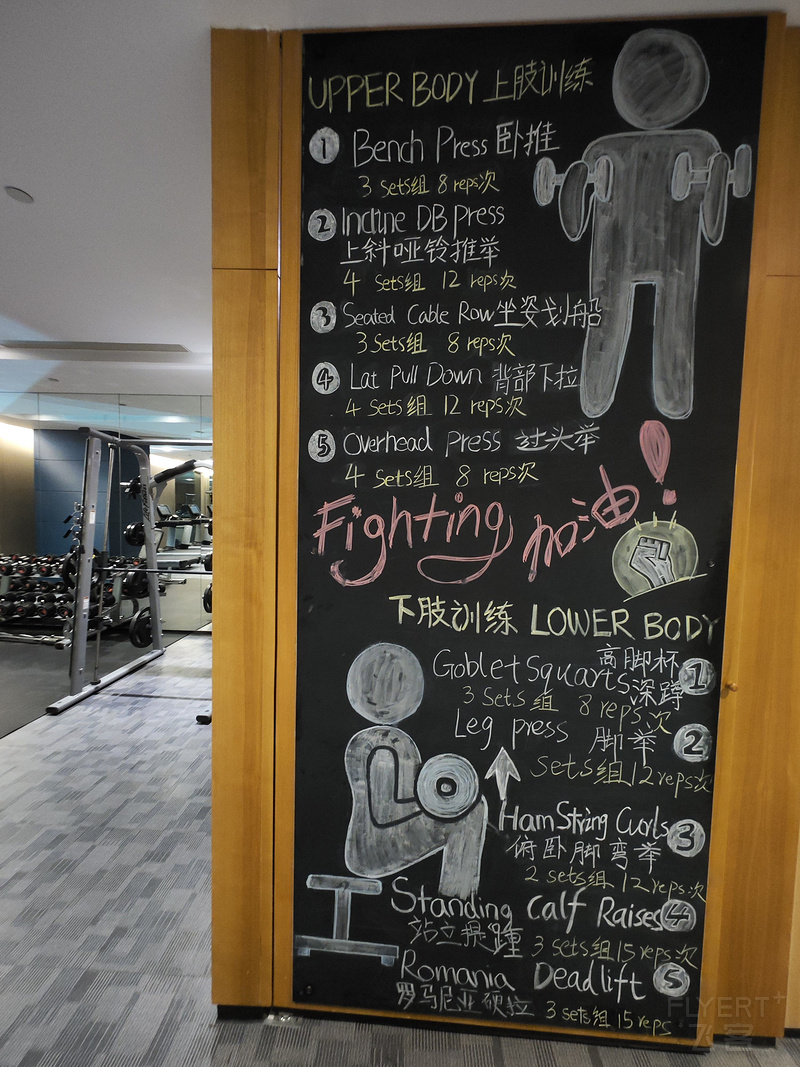 UPPER BODY 上肢训练
1 Bench Press 卧推
3 sets组 8 reps次
2 Incline DB Press
上斜哑铃推举
4 sets组 12 reps次
3 Seated Cable Row 坐姿划船
3 Sets组 8 reps次
4 Lat Pull Down 背部下拉
4 sets组 12 reps次
5 Overhead press 过头举
4 sets组 8 reps次
Fighting 加油!
下肢训练 LOWER BODY
Goblet squarts 高脚杯深蹲 1
3 Sets组 8 reps次
Leg press 脚举 2
sets组 12 reps次
Ham String Curls 3
俯卧脚弯举
2 sets组 12 reps次
Standing Calf Raises 4
站立提踵 3 sets组 15 reps次
Romania Deadlift 5
罗马尼亚硬拉 3 sets组 15 reps
FLYERT+
飞客